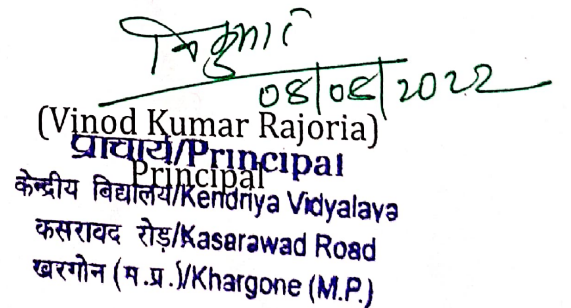 08/08/2022
(Vinod Kumar Rajoria)
प्राचार्य/Principal
Principal
केन्द्रीय विद्यालय/Kendriya Vidyalaya
कसरावद रोड़/Kasarawad Road
खरगोन (म.प्र.)/Khargone (M.P.)